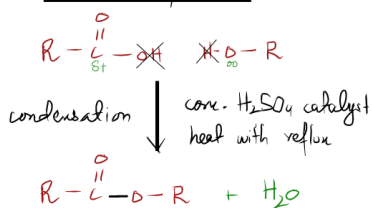 O
R - C - OH H - O - R
δ+ ∞
condensation
conc. H2SO4 catalyst
heat with reflux
O
R - C - O - R + H2O